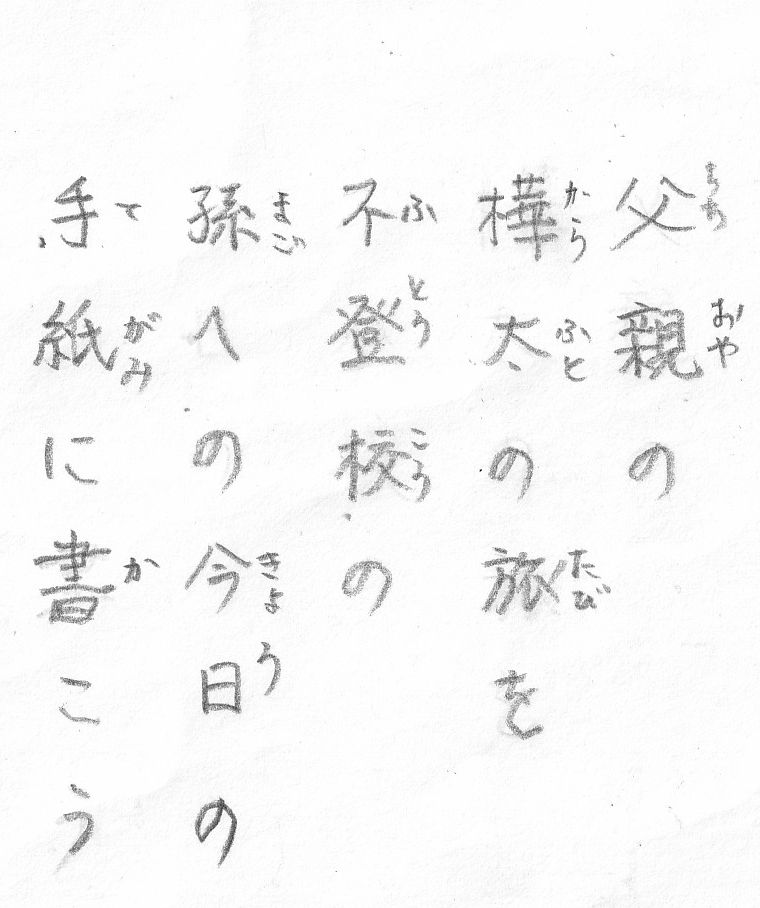 父親の
樺太の旅を
不登校の
孫への今日の
手紙に書こう
ちち
おや
から
ふと
たび
ふ
とう
こう
まご
きょう
て
がみ
か